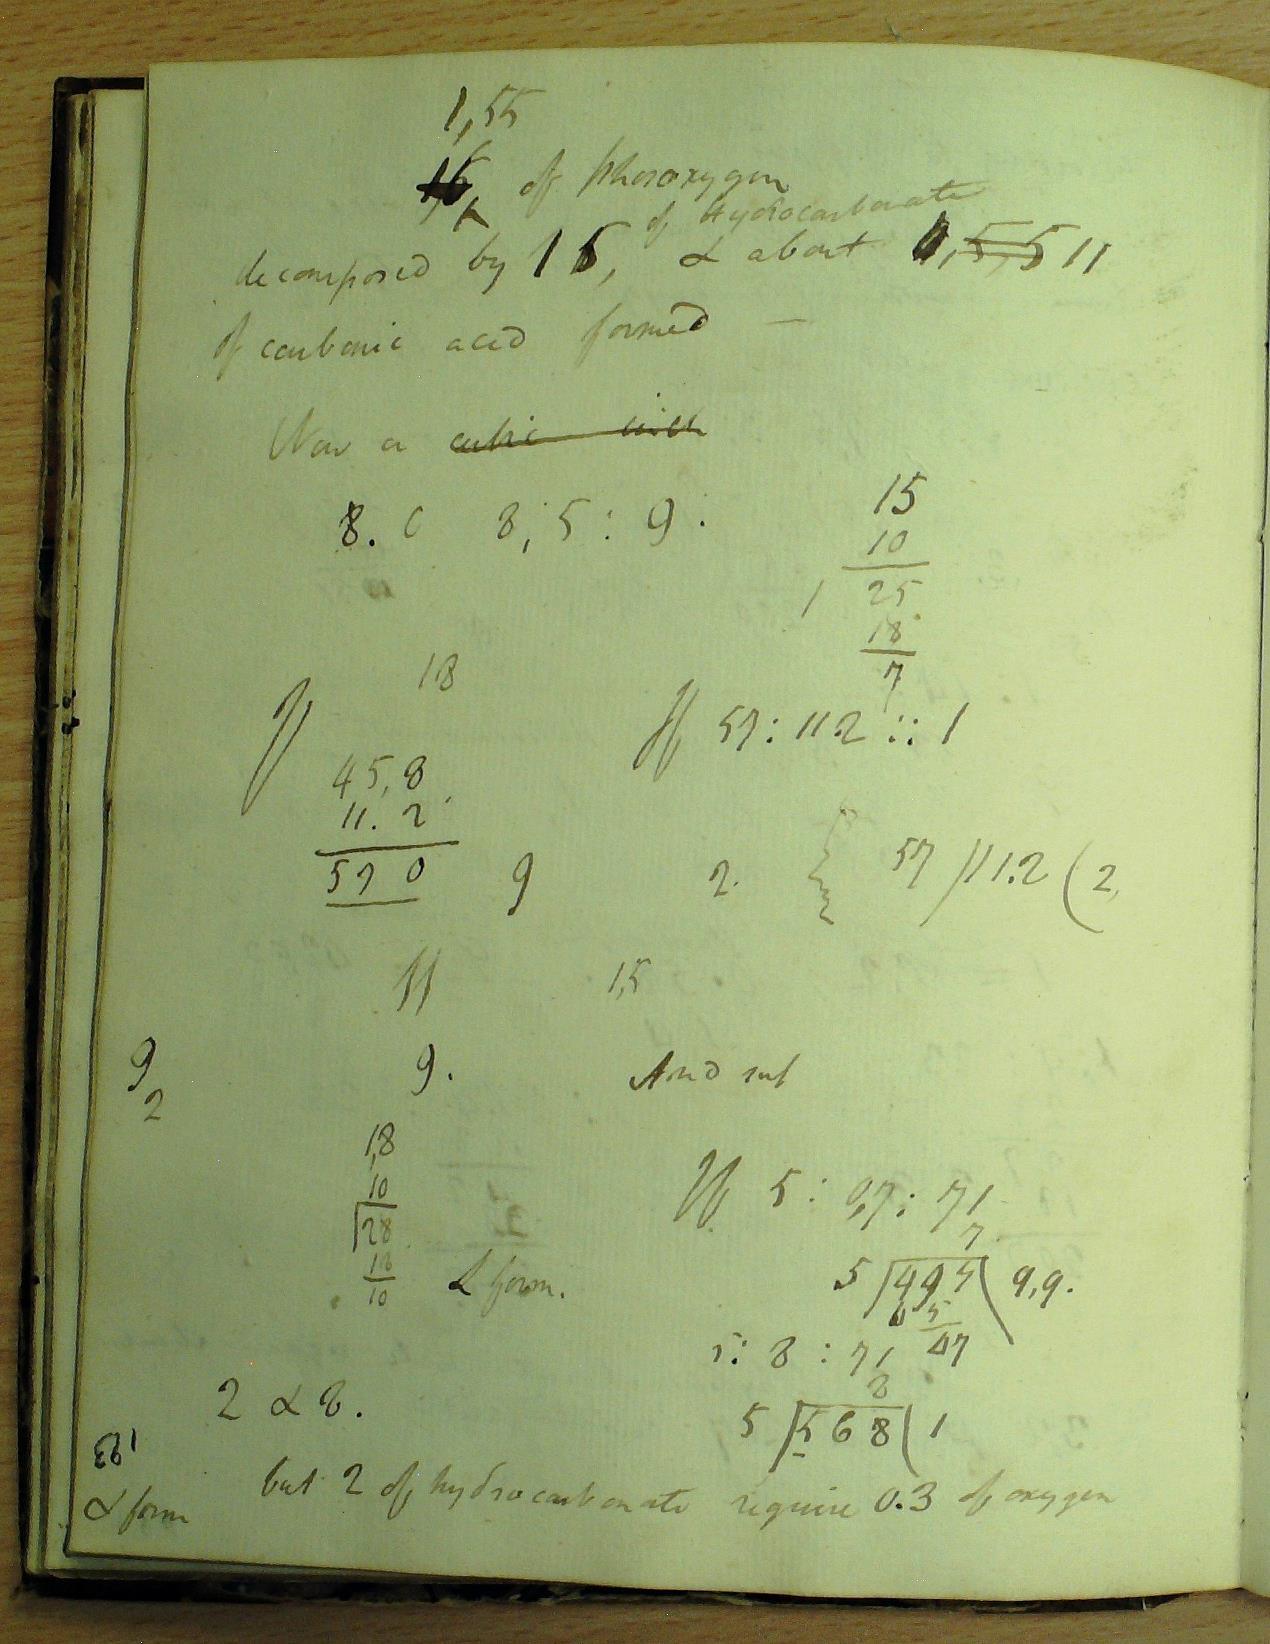 1,55
of Phosoxygen
of Hydrocarbonate
decomposed by 15, & about 11
of carbonic acid formed —
Now a cubic inch
8. c 8,5 : 9 :
15
10
1 25
18
7
18
If
45,8
11.2
570
If 57 : 112 :: 1
9
2.
57 / 11.2 ( 2,
If 1,5
9
2
9.
And sub
1,8
10
28
18
10
& form.
If 5 : 0,7 : 71
7
5 497 ( 9,9.
47
5 : 8 : 71
8
5 568 ( 1
2 & 8.
193
but 2 of hydrocarbonate require 0.3 of oxygen
& form